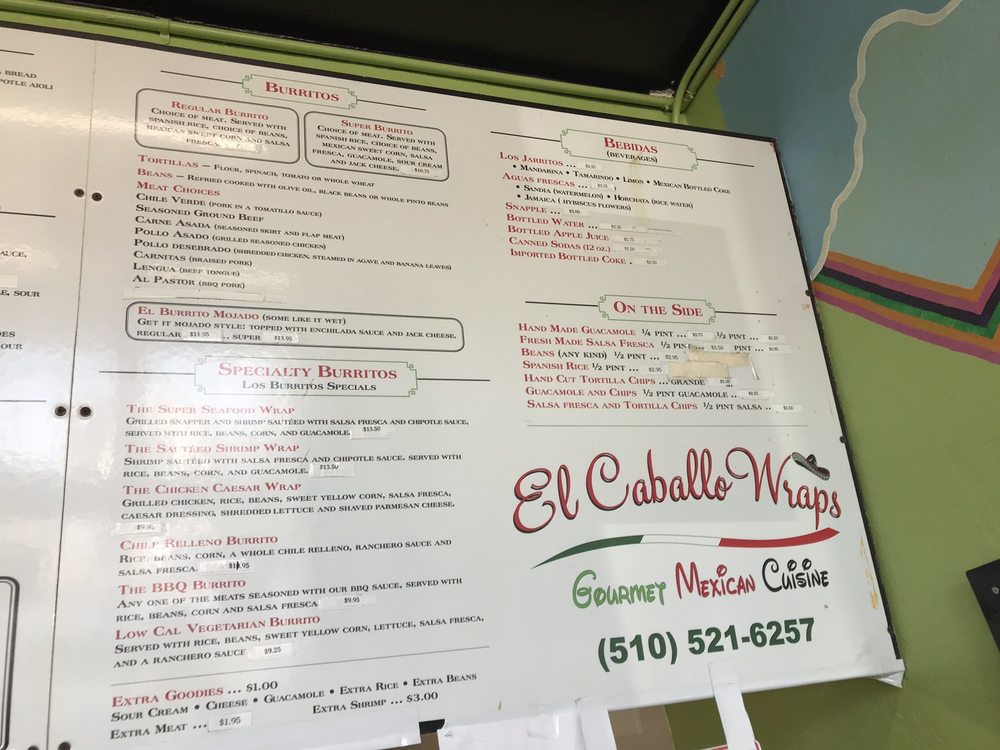 BREAD
POTLE AIOLI
SAUCE,
E, SOUR
DES
OUR
BURRITOS
REGULAR BURRITO
CHOICE OF MEAT. SERVED WITH
SPANISH RICE, CHOICE OF BEANS,
MEXICAN SWEET CORN AND SALSA
FRESCA.
SUPER BURRITO
CHOICE OF MEAT. SERVED WITH
SPANISH RICE, CHOICE OF BEANS,
MEXICAN SWEET CORN, SALSA
FRESCA, GUACAMOLE, SOUR CREAM
AND JACK CHEESE. $10.75
TORTILLAS – FLOUR, SPINACH, TOMATO OR WHOLE WHEAT
BEANS – REFRIED COOKED WITH OLIVE OIL, BLACK BEANS OR WHOLE PINTO BEANS
MEAT CHOICES
CHILE VERDE (PORK IN A TOMATILLO SAUCE)
SEASONED GROUND BEEF
CARNE ASADA (SEASONED SKIRT AND FLAP MEAT)
POLLO ASADO (GRILLED SEASONED CHICKEN)
POLLO DESEBRADO (SHREDDED CHICKEN, STEAMED IN AGAVE AND BANANA LEAVES)
CARNITAS (BRAISED PORK)
LENGUA (BEEF TONGUE)
AL PASTOR (BBQ PORK)
EL BURRITO MOJADO (SOME LIKE IT WET)
GET IT MOJADO STYLE: TOPPED WITH ENCHILADA SAUCE AND JACK CHEESE.
REGULAR $11.95 .. SUPER $13.95
SPECIALTY BURRITOS
LOS BURRITOS SPECIALS
THE SUPER SEAFOOD WRAP
GRILLED SNAPPER AND SHRIMP SAUTÉED WITH SALSA FRESCA AND CHIPOTLE SAUCE,
SERVED WITH RICE, BEANS, CORN, AND GUACAMOLE. $13.50
THE SAUTÉED SHRIMP WRAP
SHRIMP SAUTÉED WITH SALSA FRESCA AND CHIPOTLE SAUCE. SERVED WITH
RICE, BEANS, CORN, AND GUACAMOLE. $13.50
THE CHICKEN CAESAR WRAP
GRILLED CHICKEN, RICE, BEANS, SWEET YELLOW CORN, SALSA FRESCA,
CAESAR DRESSING, SHREDDED LETTUCE AND SHAVED PARMESAN CHEESE.
$9.95
CHILE RELLENO BURRITO
RICE, BEANS, CORN, A WHOLE CHILE RELLENO, RANCHERO SAUCE AND
SALSA FRESCA. $10.95
THE BBQ BURRITO
ANY ONE OF THE MEATS SEASONED WITH OUR BBQ SAUCE, SERVED WITH
RICE, BEANS, CORN AND SALSA FRESCA $9.95
LOW CAL VEGETARIAN BURRITO
SERVED WITH RICE, BEANS, SWEET YELLOW CORN, LETTUCE, SALSA FRESCA,
AND A RANCHERO SAUCE $9.25
EXTRA GOODIES ... $1.00
SOUR CREAM • CHEESE • GUACAMOLE • EXTRA RICE • EXTRA BEANS
EXTRA MEAT ... $1.95 EXTRA SHRIMP ... $3.00
BEBIDAS
(BEVERAGES)
LOS JARRITOS ...
• MANDARINA • TAMARINDO • LIMON • MEXICAN BOTTLED COKE
AGUAS FRESCAS ...
• SANDIA (WATERMELON) • HORCHATA (RICE WATER)
• JAMAICA (HYBISCUS FLOWERS)
SNAPPLE ...
BOTTLED WATER ...
BOTTLED APPLE JUICE
CANNED SODAS (12 OZ.)
IMPORTED BOTTLED COKE .
ON THE SIDE
HAND MADE GUACAMOLE ¼ PINT ... ½ PINT ...
FRESH MADE SALSA FRESCA ½ PINT PINT ...
BEANS (ANY KIND) ½ PINT ... $2.95
SPANISH RICE ½ PINT ... $2.95
HAND CUT TORTILLA CHIPS ... GRANDE
GUACAMOLE AND CHIPS ½ PINT GUACAMOLE ..
SALSA FRESCA AND TORTILLA CHIPS ½ PINT SALSA ..
El Caballo Wraps
Gourmet Mexican Cuisine
(510) 521-6257